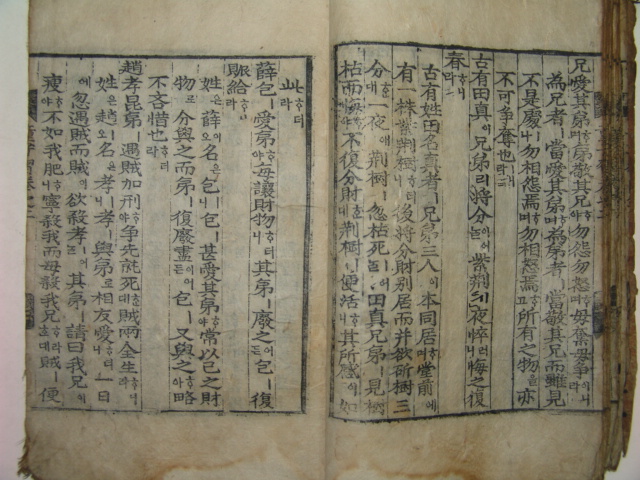 兄愛其弟ᄒᆞ며弟敬其兄ᄒᆞ야勿怨勿怒ᄒᆞ며毋棄毋爭이니라
為兄者ㅣ當愛其弟ᄒᆞ며為弟者ㅣ當敬其兄而雖見
不是處ㅣ나勿相怨焉ᄒᆞ며勿相怒焉ᄒᆞ고所有之物을亦
不可爭奪也ㅣ니라
古有田真이兄弟ㅣ將分이어ᄂᆞᆯ紫荊이夜悴러니悔之復
春ᄒᆞ니라
古有姓田名真者ㅣ兄弟三人이本同居ᄒᆞ더니堂前에
有一株紫荊樹ᄒᆞ더니後將分財別居而并欲斫樹三
分ᄒᆞᆫ대一夜애荊樹ㅣ忽枯死ᄒᆞ거ᄂᆞᆯ田真兄弟ㅣ見樹
枯而悔ᄒᆞ야不復分財ᄒᆞᆫ대荊樹ㅣ便活ᄒᆞ니其所感이如
此ᄒᆞ더라
薛包ㅣ愛弟ᄒᆞ야每讓財物ᄒᆞ더니其弟ㅣ廢之어든包ㅣ復
賑給ᄒᆞ니라
姓은薛이오名은包ㅣ니包ㅣ甚愛其弟ᄒᆞ야常以己之財
物로分與之而弟ㅣ復廢盡이어든包ㅣ又與之ᄒᆞ야略
不吝惜也ᄒᆞ더라
趙孝昆弟ㅣ遇賊加刑ᄒᆞ야爭先就死ᄒᆞᆫ대賊兩全生ᄒᆞ니라
姓은趙ㅣ오名은孝ㅣ니孝ㅣ與弟로相友愛ᄒᆞ더니一日
에忽遇賊而賊이欲殺孝ㅣ어ᄂᆞᆯ其弟ㅣ請曰我兄이
瘦ᄒᆞ야不如我肥ᄒᆞ니寧殺我而毋殺我兄ᄒᆞ라ᄒᆞᆫ대賊ㅣ便